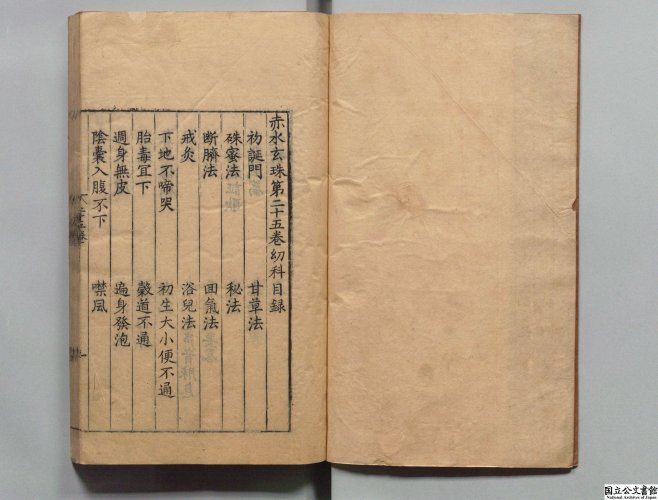 赤水玄珠第二十五卷幼科目録
初誕門 甘草法
硃蜜法 秘法
断臍法 回氣法
戒灸 浴兒法
下地不啼哭 初生大小便不通
胎毒宜下 穀道不通
遍身無皮 遍身發泡
陰囊入腹不下 噤風
国立公文書館
National Archives of Japan